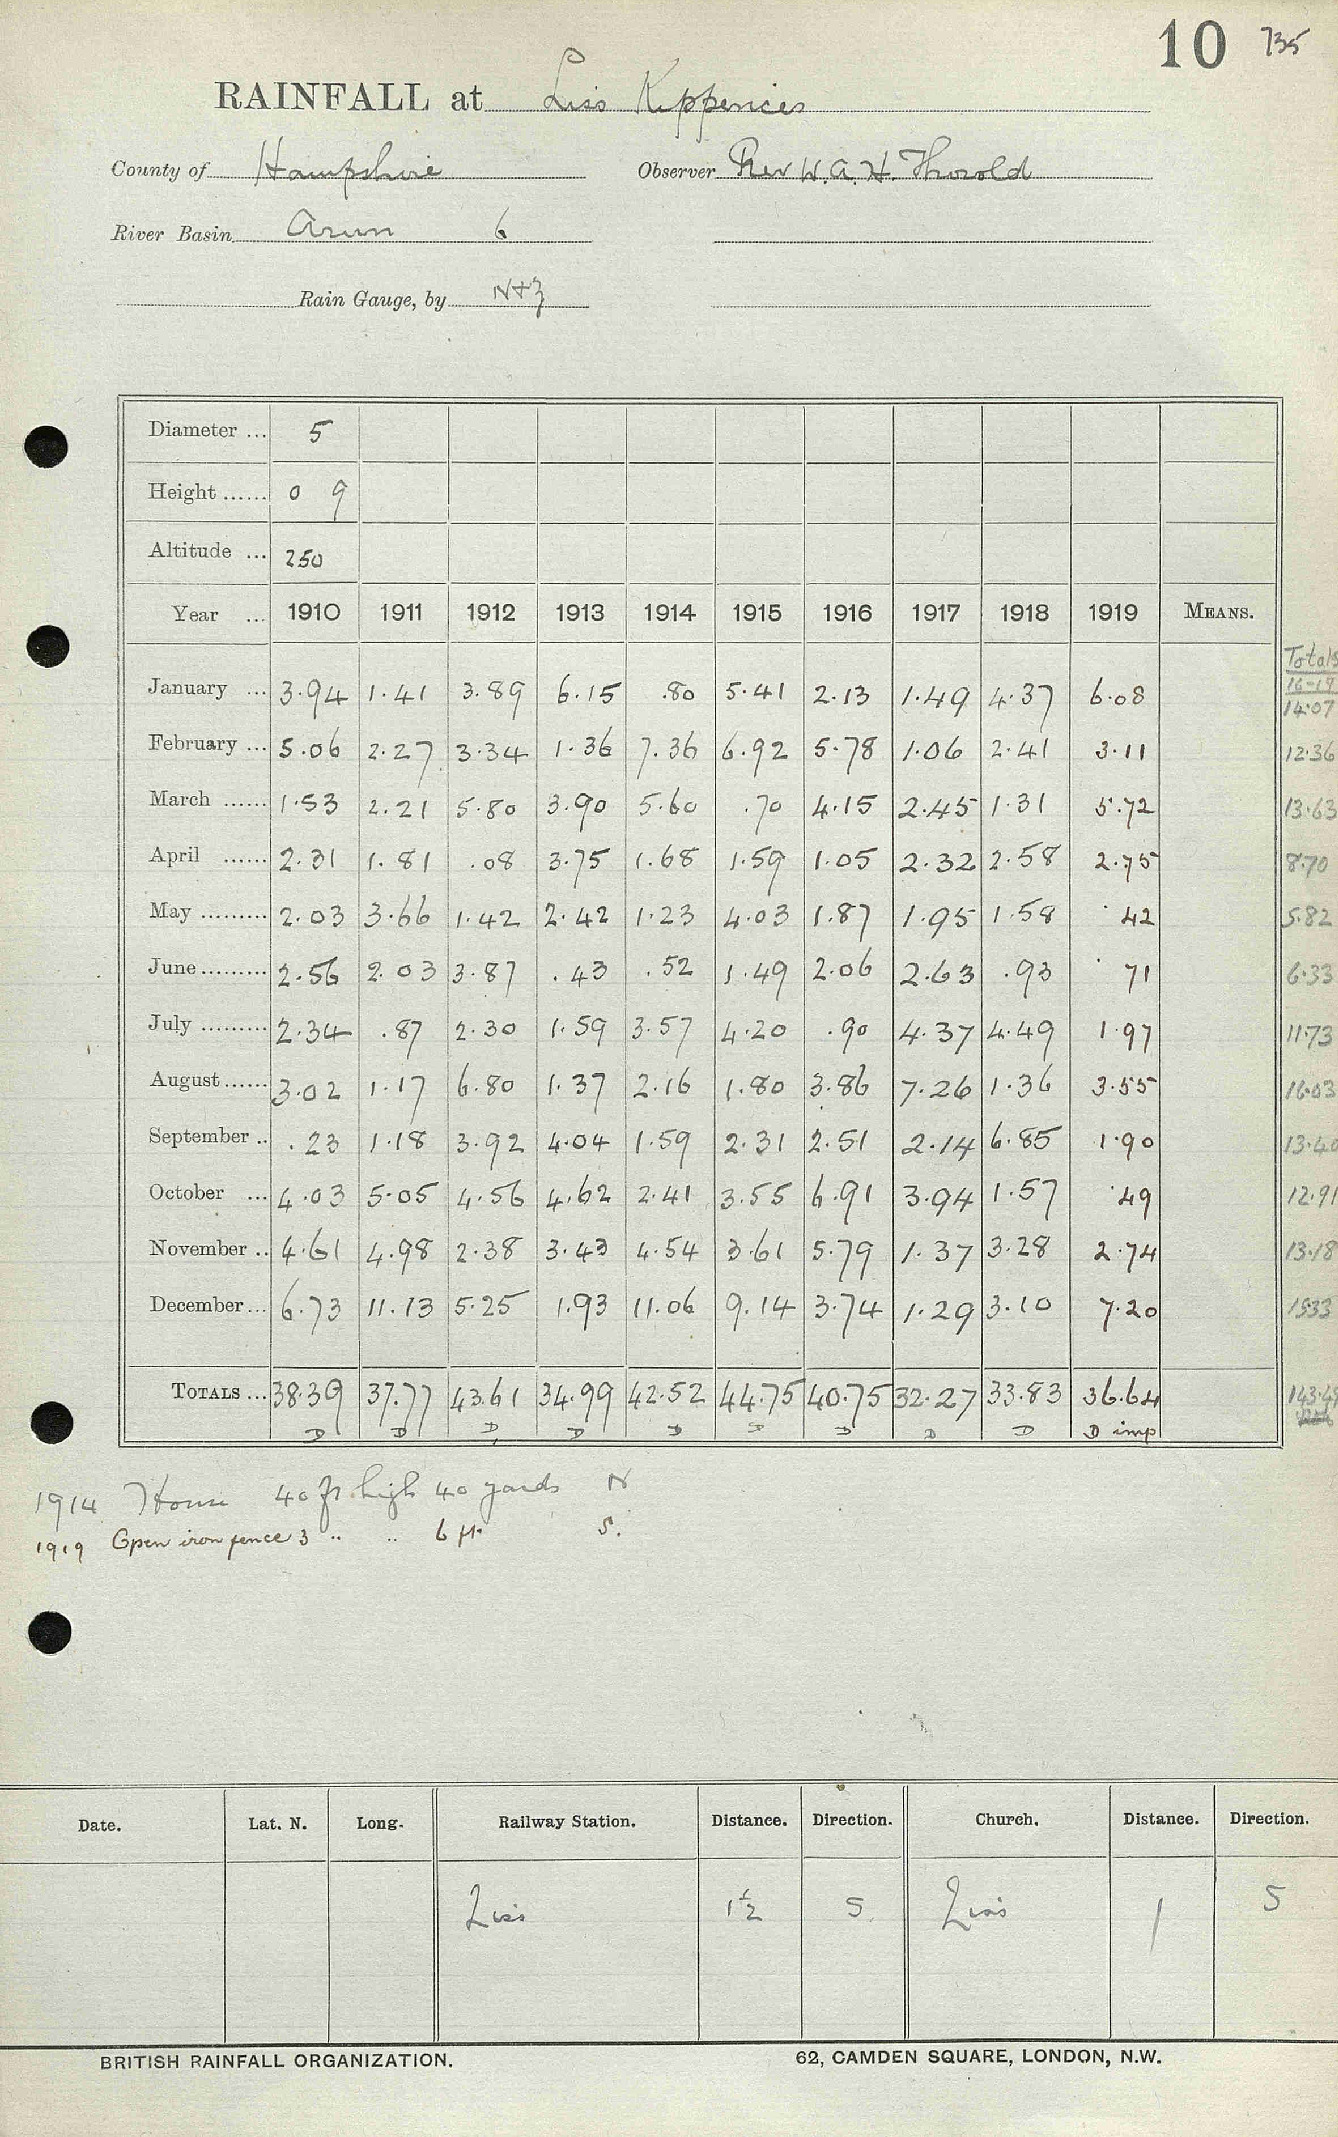 10 735
RAINFALL at Liss Kippences
County of Hampshire Observer Rev W. A. H. Thorold
River Basin Arun 6
Rain Gauge, by N+Z
Diameter ... 5
Height ...... 0 9
Altitude ... 250
Year ... 1910 1911 1912 1913 1914 1915 1916 1917 1918 1919 MEANS.
Totals
16-19
January ... 3.94 1.41 3.89 6.15 .80 5.41 2.13 1.49 4.37 6.08 14.07
February ... 5.06 2.27 3.34 1.36 7.36 6.92 5.78 1.06 2.41 3.11 12.36
March ...... 1.53 2.21 5.80 3.90 5.60 .70 4.15 2.45 1.31 5.72 13.63
April ...... 2.31 1.81 .08 3.75 1.68 1.59 1.05 2.32 2.58 2.75 8.70
May ......... 2.03 3.66 1.42 2.42 1.23 4.03 1.87 1.95 1.58 .42 5.82
June ......... 2.56 2.03 3.87 .43 .52 1.49 2.06 2.63 .93 .71 6.33
July ......... 2.34 .87 2.30 1.59 3.57 4.20 .90 4.37 4.49 1.97 11.73
August ...... 3.02 1.17 6.80 1.37 2.16 1.80 3.86 7.26 1.36 3.55 16.03
September .. .23 1.18 3.92 4.04 1.59 2.31 2.51 2.14 6.85 1.90 13.40
October ... 4.03 5.05 4.56 4.62 2.41 3.55 6.91 3.94 1.57 .49 12.91
November .. 4.61 4.98 2.38 3.43 4.54 3.61 5.79 1.37 3.28 2.74 13.18
December ... 6.73 11.13 5.25 1.93 11.06 9.14 3.74 1.29 3.10 7.20 15.33
TOTALS ... 38.39 37.77 43.61 34.99 42.52 44.75 40.75 32.27 33.83 36.64 143.49
D D D D D D D D D D imp
1914 House 40 ft high 40 yards N
1919 Open iron fence 3 " " 6 ft. S.
Date. Lat. N. Long. Railway Station. Distance. Direction. Church. Distance. Direction.
Liss 1½ S. Liss 1 S
BRITISH RAINFALL ORGANIZATION. 62, CAMDEN SQUARE, LONDON, N.W.